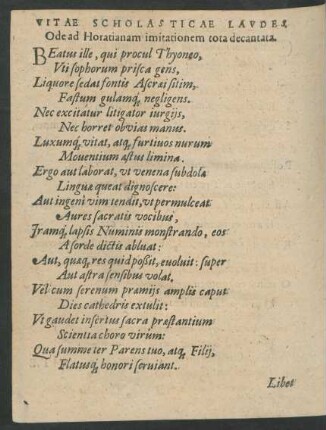 VITAE SCHOLASTICAE LAVDES,
Ode ad Horatianam imitationem tota decantata.
BEatus ille, qui procul Thyoneo,
Vti sophorum prisca gens,
Liquore sedat fontis Ascrai sitim,
Fastum gulamq́, negligens.
Nec excitatur litigator iurgijs,
Nec horret obvias manus.
Luxumq́, vitat, atq́, furtivos nurum
Moventium astus limina.
Ergo aut laborat, vt venena subdolæ
Linguæ queat dignoscere:
Aut ingenî vim tendit, vt permulceat
Aures sacratis vocibus,
Iramq́, lapsis Numinis monstrando, eos
A sorde dictis abluat:
Aut, quæq, res quid possit, evoluit: super
Aut astra sensibus volat,
Vel cum serenum pramijs amplis caput
Dies cathedris extulit:
Vt gaudet insertus sacra præstantium
Scientia choro virûm:
Qua summe ter Parens tuo, atq́, Filij,
Flatusq́, honori serviant.
Libet